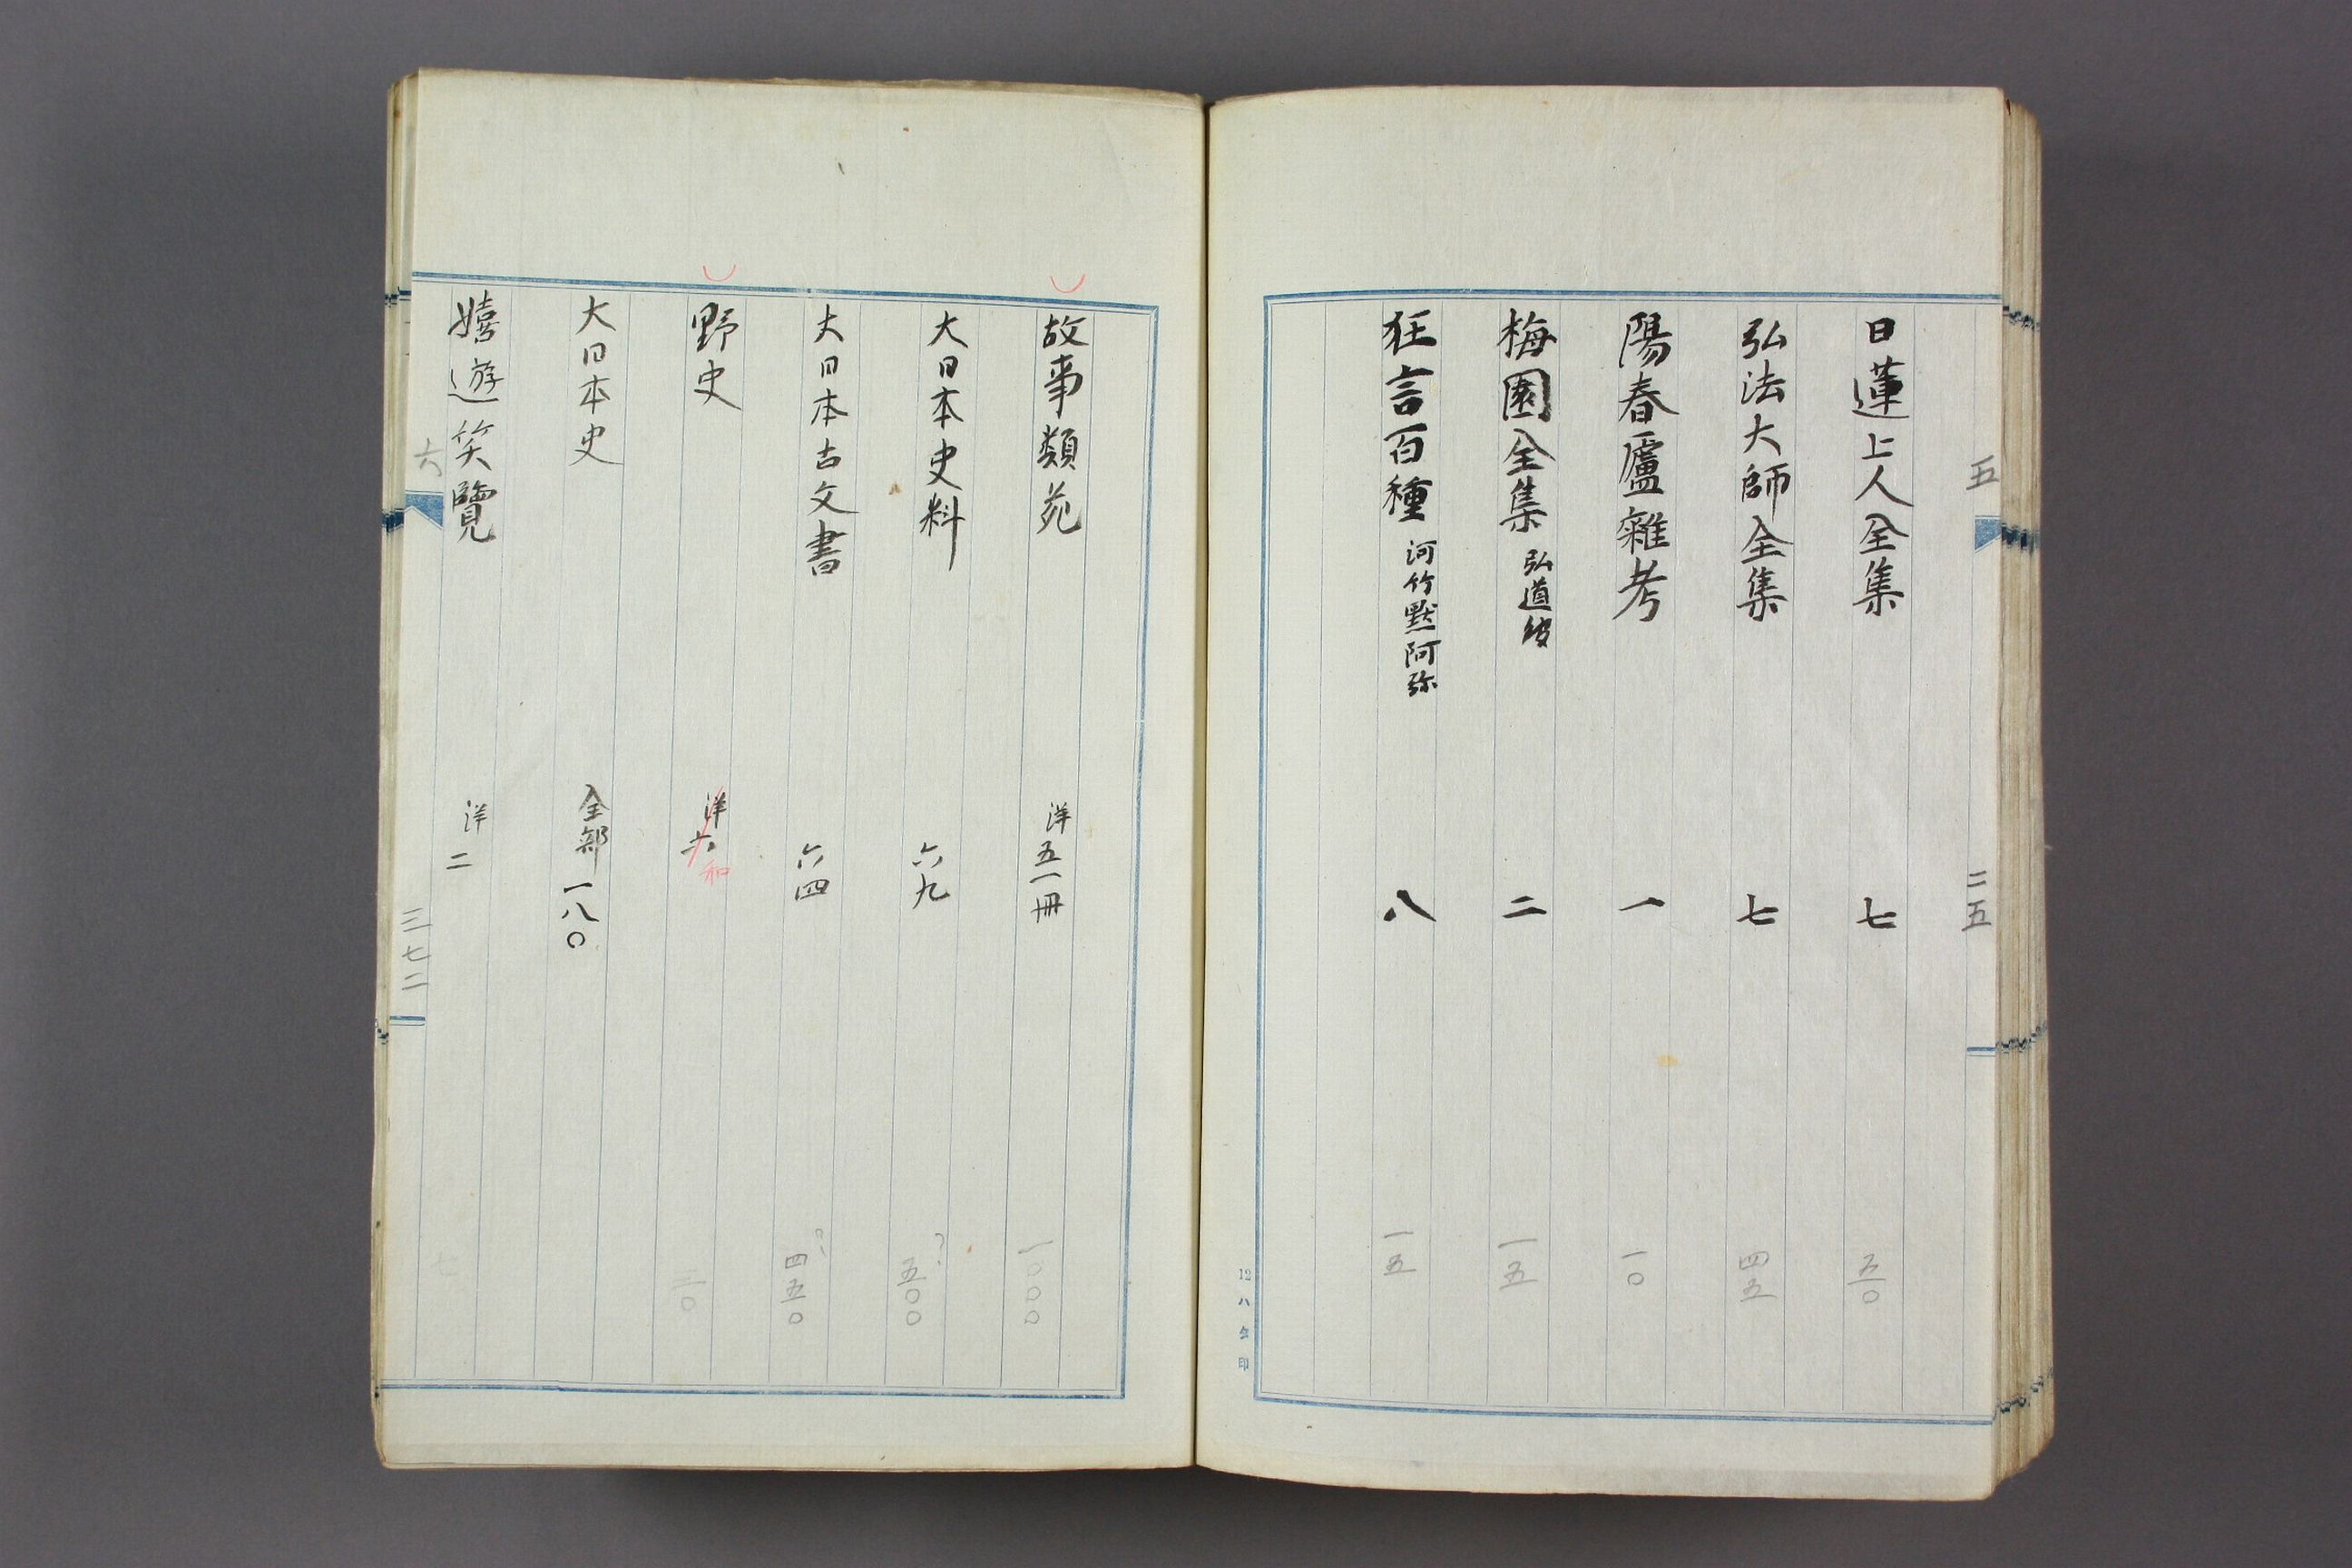 五 二五
日蓮上人全集 七 五〇
弘法大師全集 七 四五
陽春廬雜考 一 一〇
梅園全集 弘道 二 一五
狂言百種 河竹黙阿弥 八 一五
12 ハ 印
故事類苑 洋五一冊 一〇〇〇
大日本史料 六九 ?五〇〇
大日本古文書 六四 ?四五〇
野史 洋六 和
大日本史 全部 一八〇
嬉遊笑覽 洋二 七
六 三七二